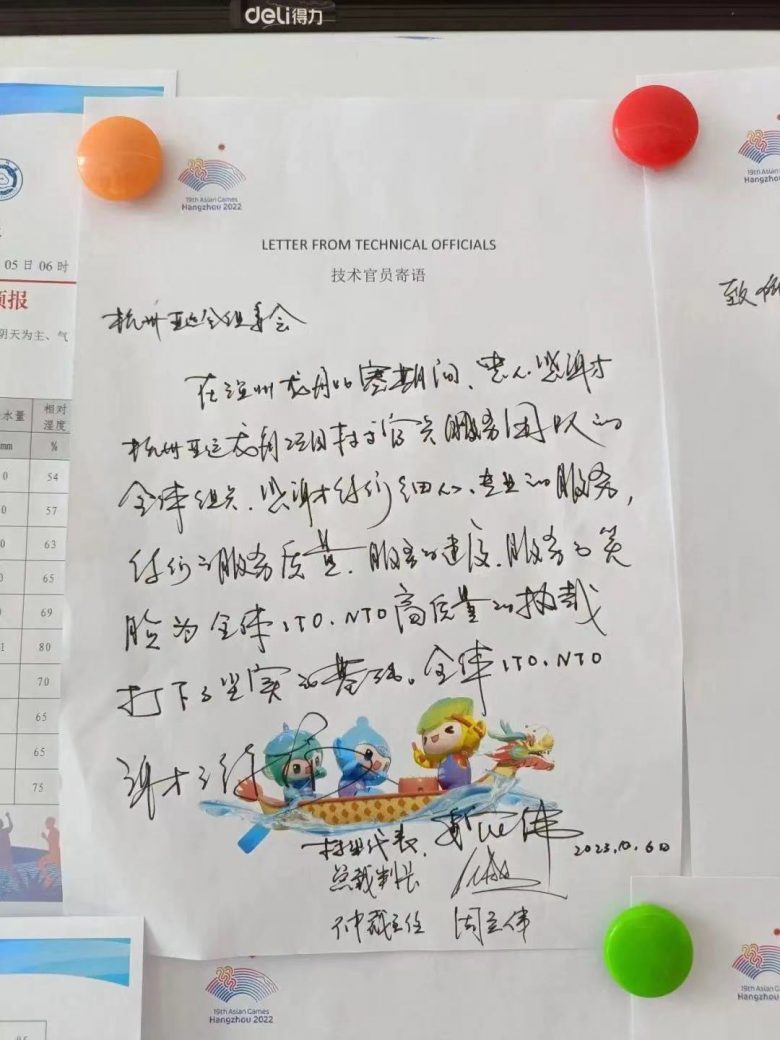 deli得力
19th Asian Games
Hangzhou 2022
19th Asian Games
Hangzhou
LETTER FROM TECHNICAL OFFICIALS
技术官员寄语
05日06时
预报
阴天为主、气
水量
相对
湿度
mm
%
54
57
63
65
69
80
70
65
65
75
致
杭州亚运会组委会
在温州龙舟的赛期间,衷心感谢
杭州亚运龙舟项目技术官员服务团队的
全体组员,感谢你们细心、专业的服务,
你们的服务质量、服务的速度、服务的笑
脸为全体ITO、NTO高质量的执裁
打下了坚实的基础。全体ITO、NTO
谢谢你们
技术代表
2023.10.6日
总裁判长
仲裁主任 周立伟
19th Asian Games
Hangzhou 2022
19th Asian Ga
Hangzhou 2